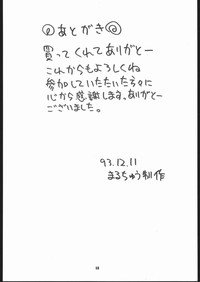 あとがき
買ってくれてありがとー
これからもよろしくね
参加していただいた方々に
心から感謝します。ありがとー
ございました。
93.12.11
まるちゅう制作